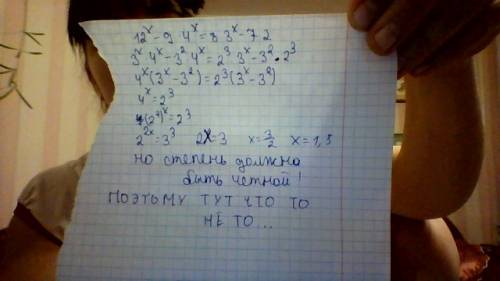 12ˣ-9·4ˣ=8·3ˣ-72
3ˣ·4ˣ-3²·4ˣ=2³·3ˣ-3²·2³
4ˣ(3ˣ-3²)=2³(3ˣ-3²)
4ˣ=2³
(2²)ˣ=2³
2²ˣ=3³ 2x=3 x=3/2 x=1,5
но степень должна
быть четной!
ПОЭТОМУ ТУТ ЧТО ТО
НЕ ТО...